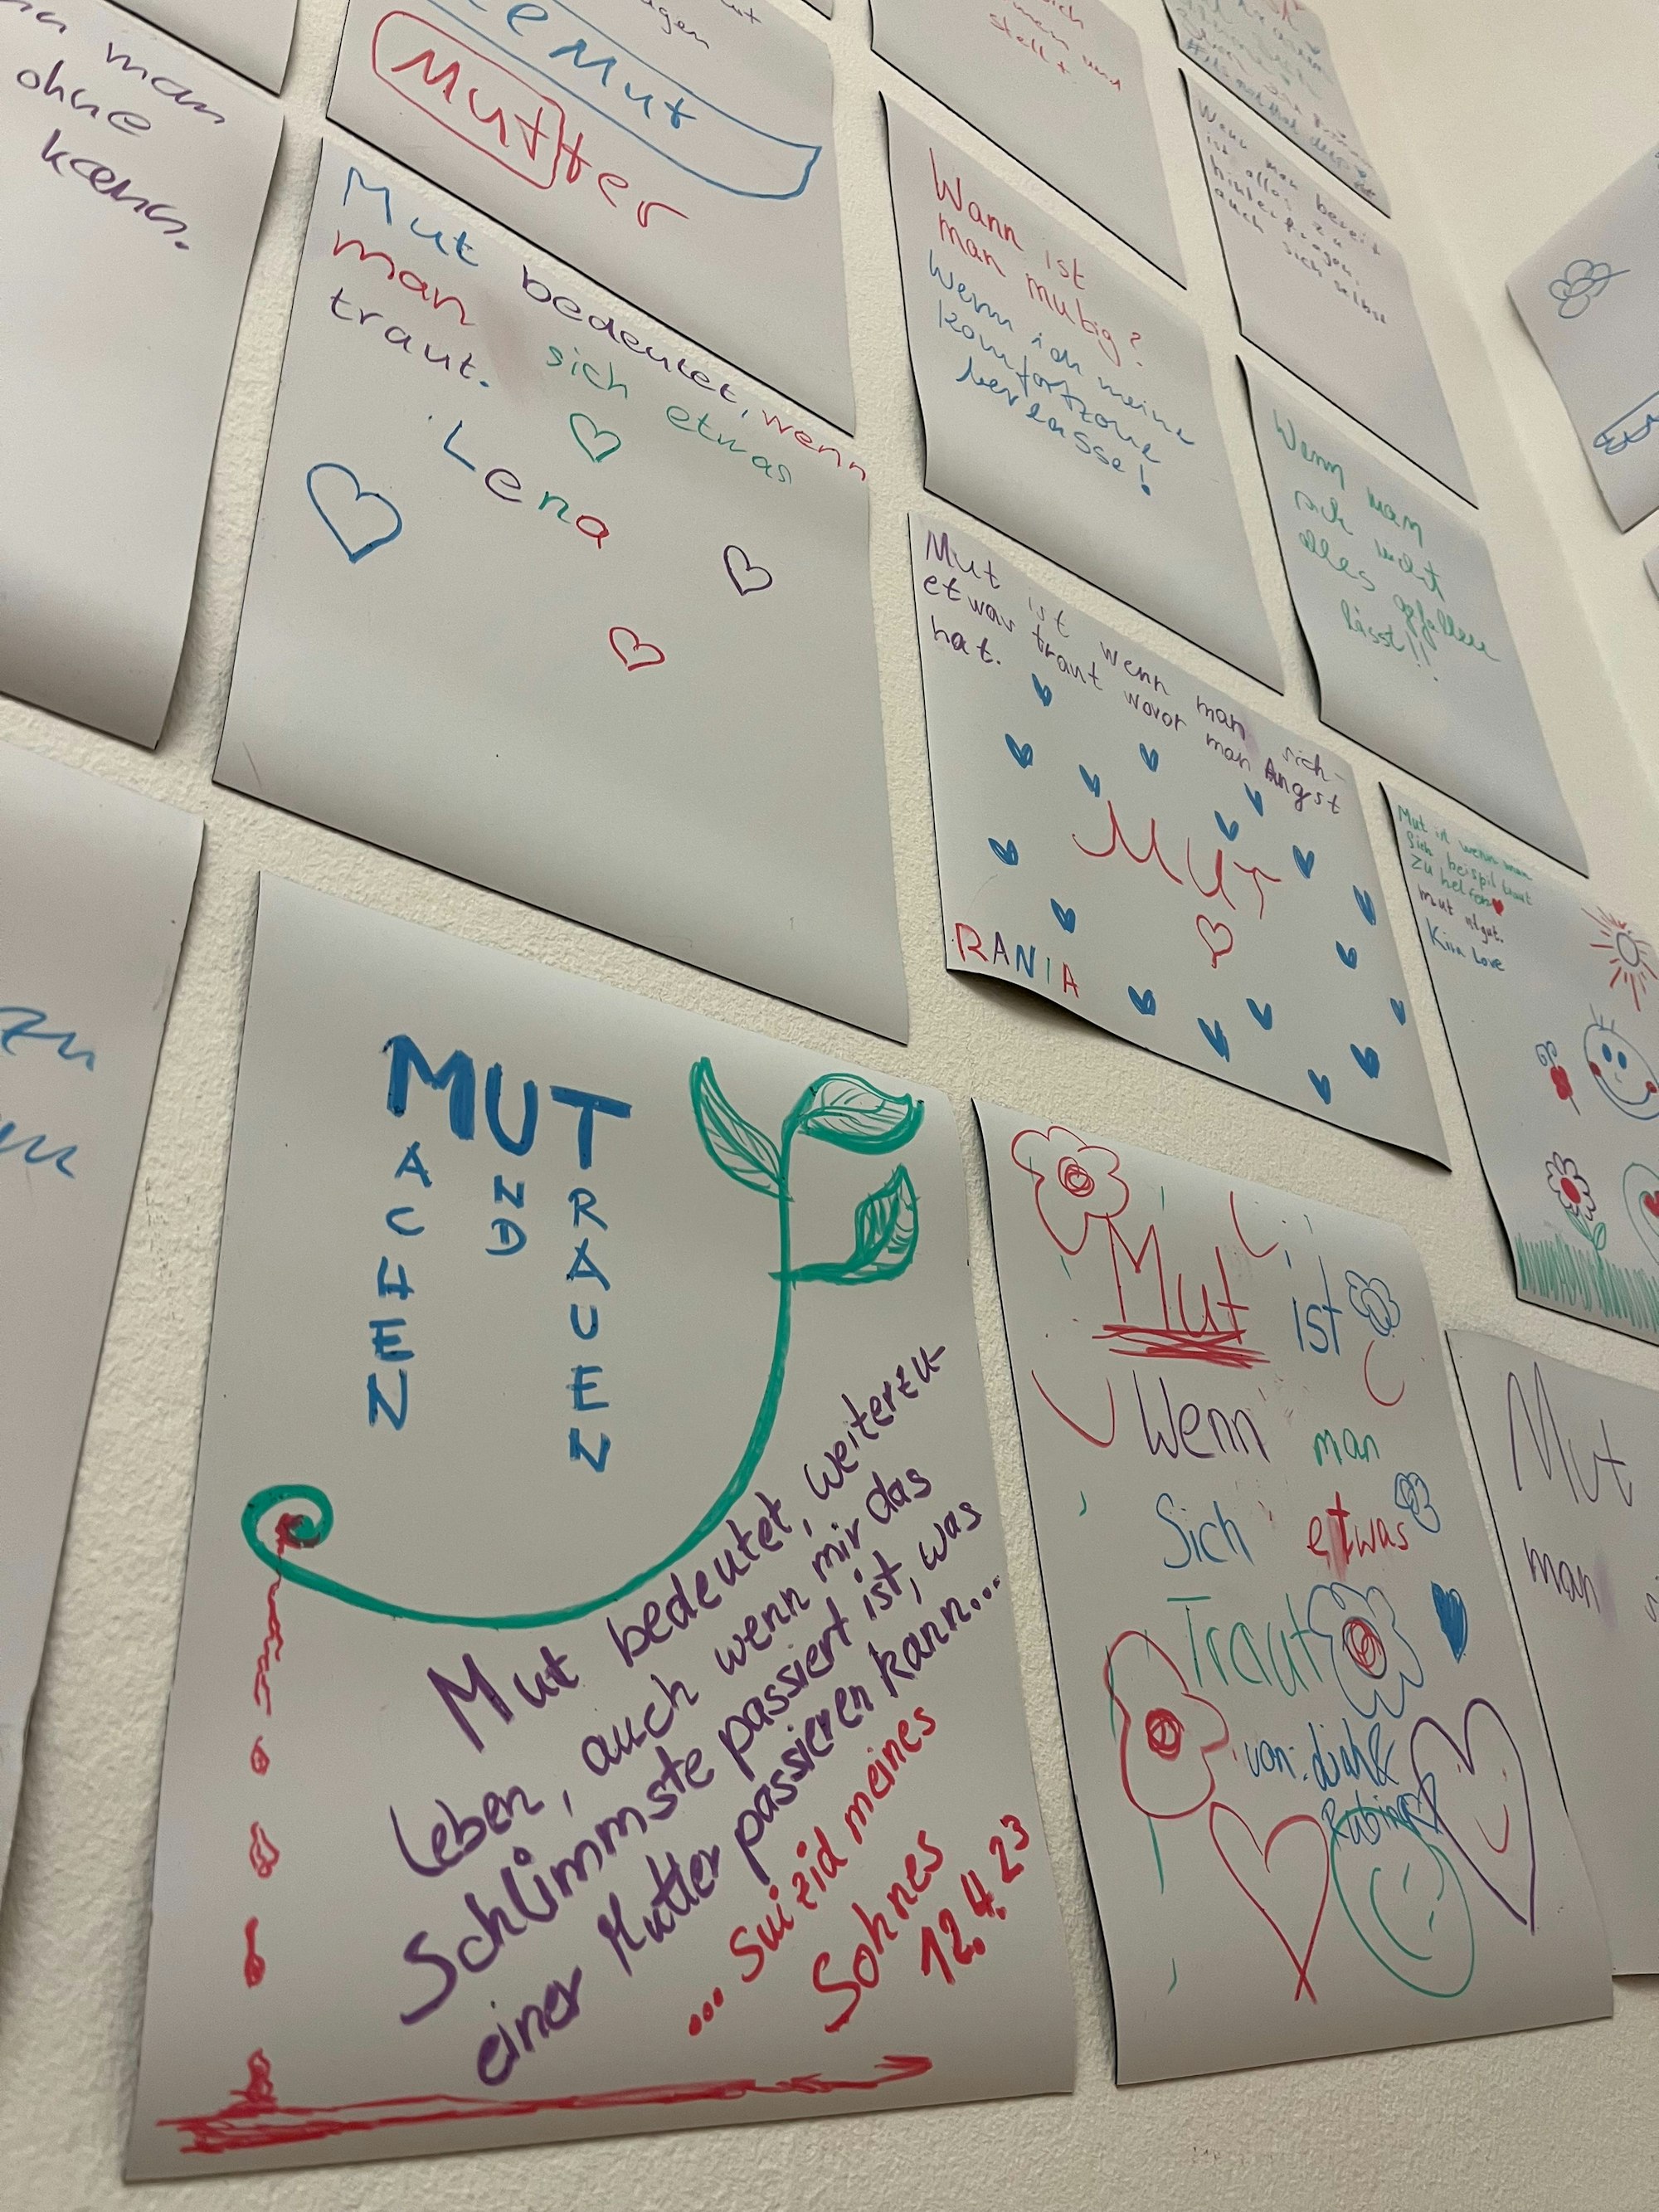 man
ohne
kann.
Mut
Mutter
Mut bedeutet, wenn
man sich etwas
traut.
Lena
zu
MUT
MACHEN
UND
TRAUEN
Mut bedeutet, weiterzu-
leben, auch wenn mir das
Schlimmste passiert ist, was
einer Mutter passieren kann...
... Suizid meines
Sohnes
12.4.23
stellt
Wann ist
man mutig?
Wenn ich meine
Komfortzone
verlasse!
Mut ist wenn man sich-
etwas traut wovor man Angst
hat.
MUT
RANIA
Mut ist
Wenn man
Sich etwas
Traut
von:
Wenn man bereit
ist alles zu
hinterfragen
auch sich selbst
Wenn man
sich nicht
alles gefallen
lässt!!
Mut ist wenn man
sich beispil traut
zu helfen
mut ist gut.
Kira Love
Mut
man